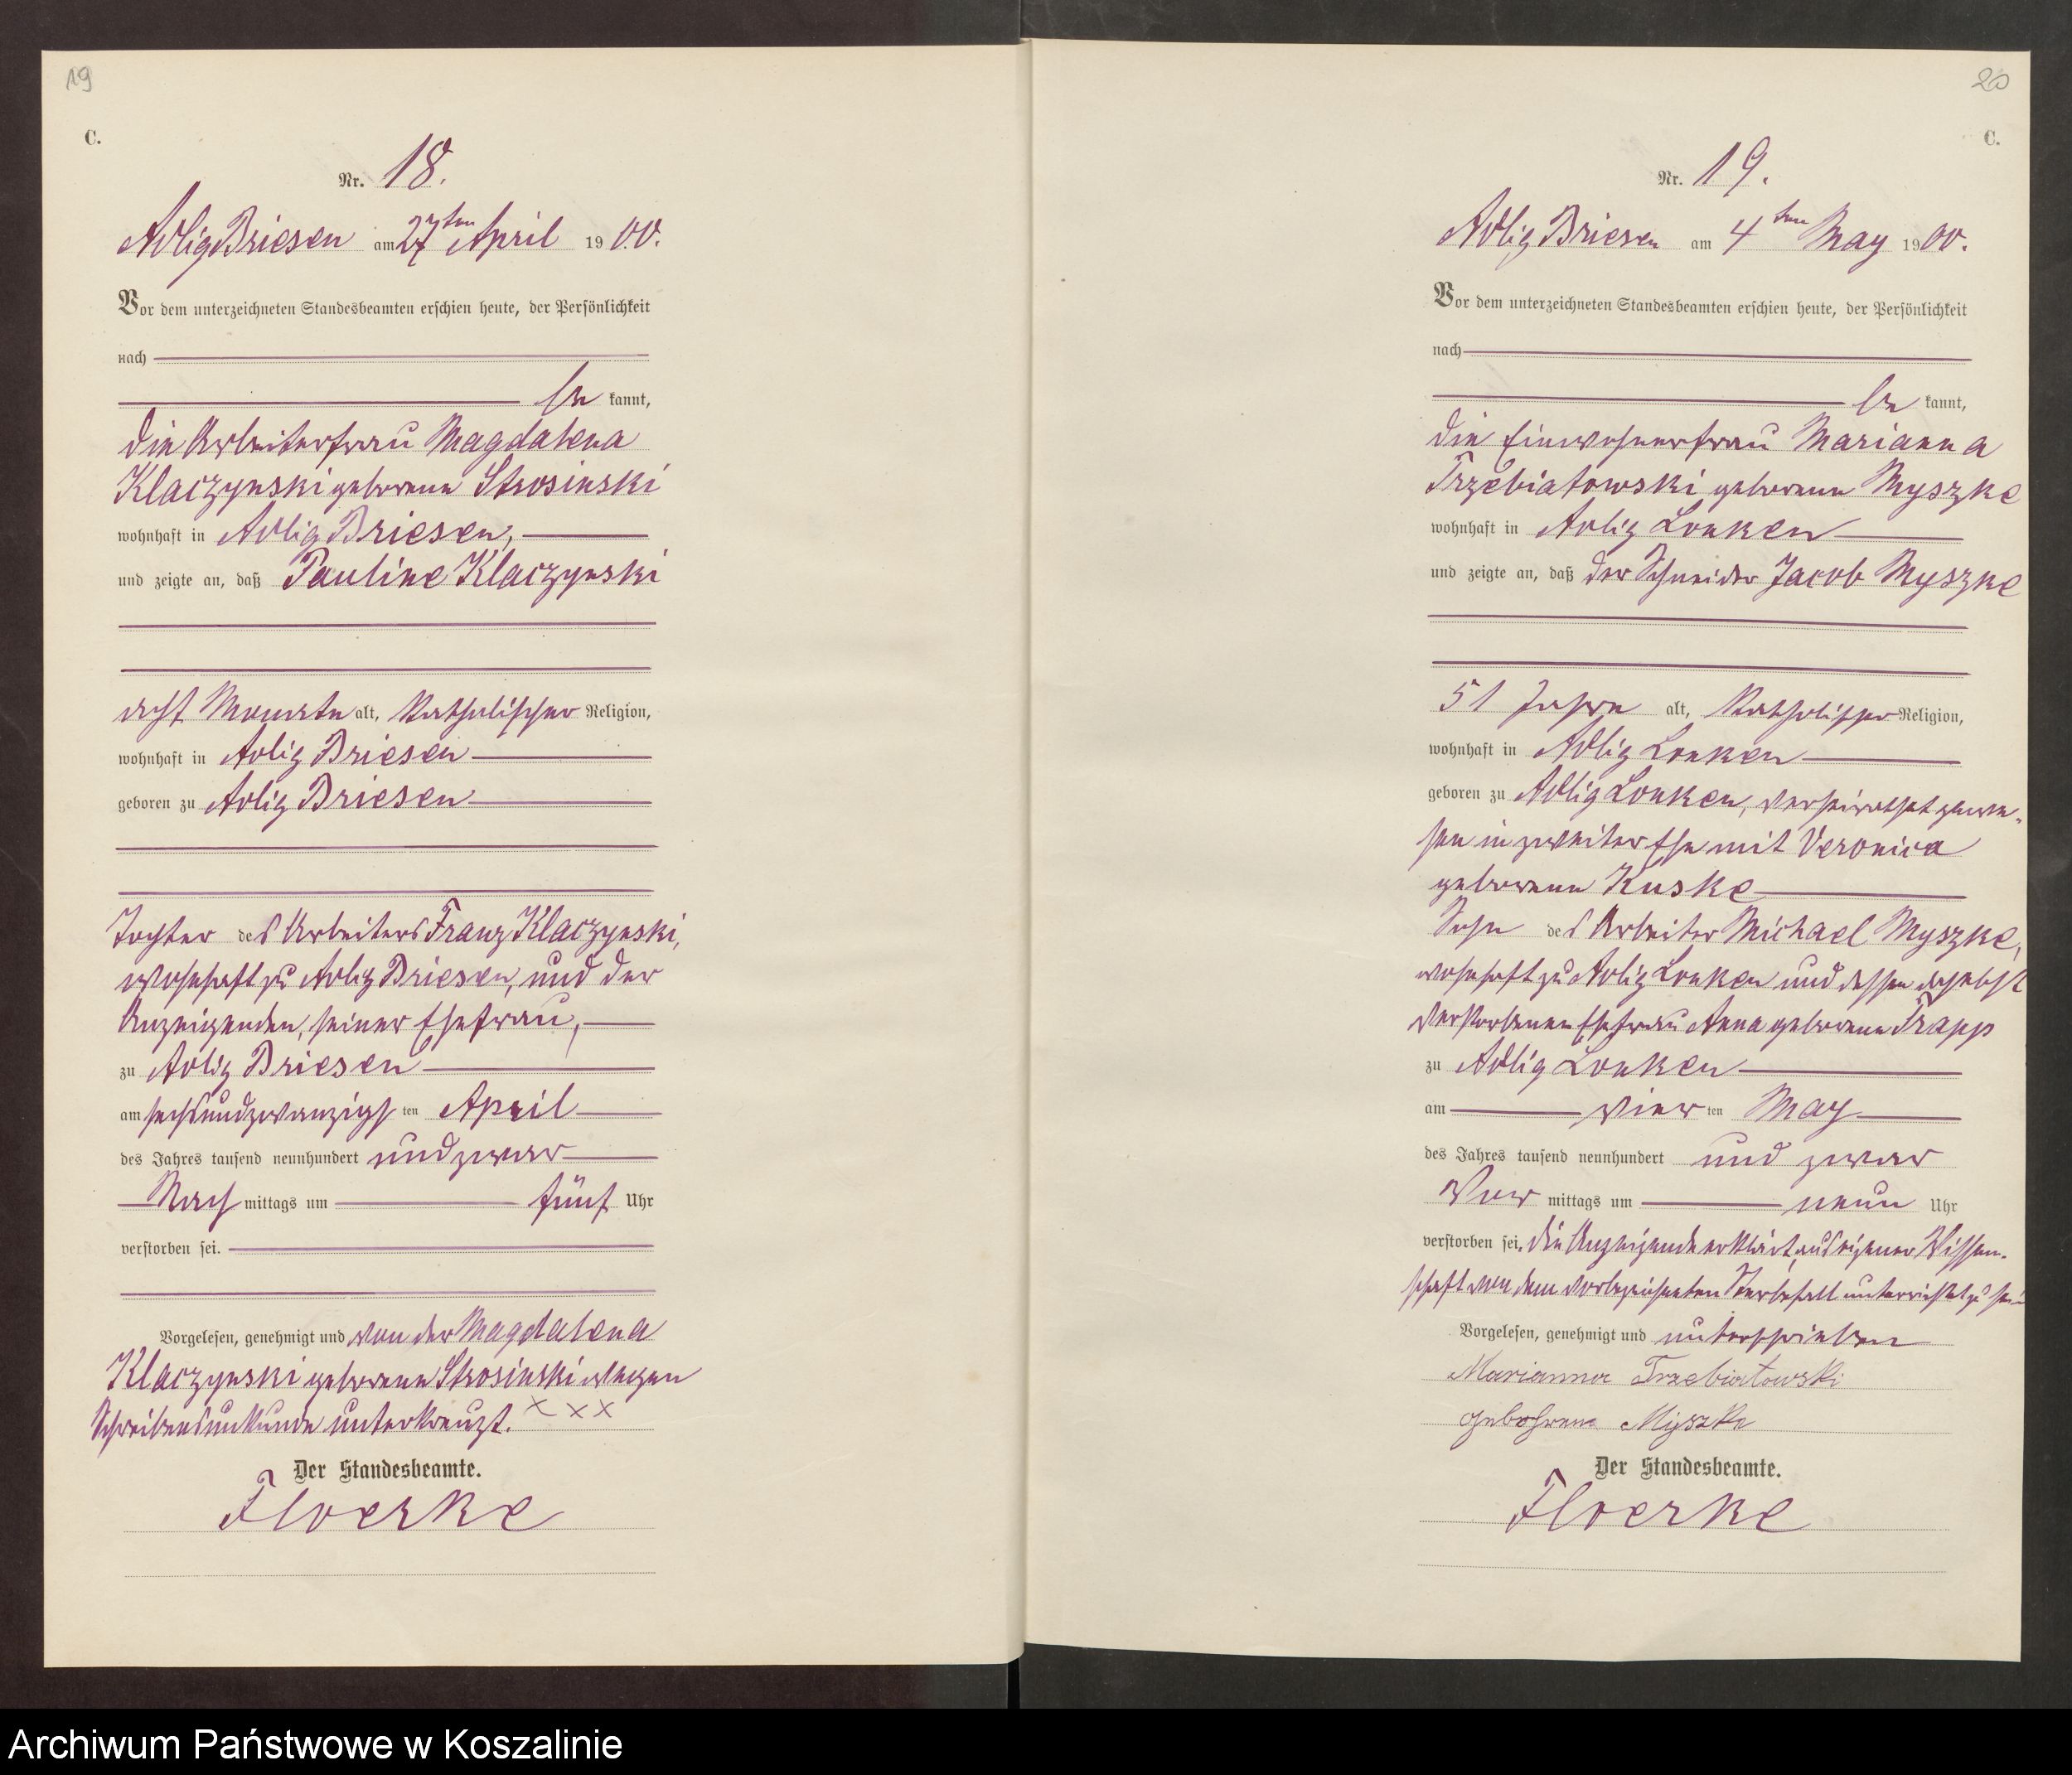 19
C.
Nr. 18.
Adlig Briesen am 27ten April 1900.
Vor dem unterzeichneten Standesbeamten erschien heute, der Persönlichkeit
nach
be kannt,
die Arbeiterfrau Magdalena
Klaczynski geborene Strosinski
wohnhaft in Adlig Briesen,
und zeigte an, daß Pauline Klaczynski
acht Monate alt, katholischer Religion,
wohnhaft in Adlig Briesen
geboren zu Adlig Briesen
Tochter des Arbeiters Franz Klaczynski,
wohnhaft zu Adlig Briesen, und der
Anzeigenden, seiner Ehefrau,
zu Adlig Briesen
am sechsundzwanzigsten April
des Jahres tausend neunhundert und zwar
Nach mittags um fünf Uhr
verstorben sei.
Vorgelesen, genehmigt und von der Magdalena
Klaczynski geborene Strosinski wegen
Schreibensunkunde unterkreuzt. XXX
Der Standesbeamte.
Floerke
20
C.
Nr. 19.
Adlig Briesen am 4ten May 1900.
Vor dem unterzeichneten Standesbeamten erschien heute, der Persönlichkeit
nach
be kannt,
die Einwohnerfrau Marianna
Trzebiatowski geborene Myszke
wohnhaft in Adlig Lonken
und zeigte an, daß der Schneider Jacob Myszke
51 Jahre alt, katholischer Religion,
wohnhaft in Adlig Lonken
geboren zu Adlig Lonken, verheirathet gewe-
sen in zweiter Ehe mit Veronica
geborene Kuske
Sohn des Arbeiter Michael Myszke,
wohnhaft zu Adlig Lonken und dessen daselbst
verstorbenen Ehefrau Anna geborene Trapp
zu Adlig Lonken
am vierten May
des Jahres tausend neunhundert und zwar
Vor mittags um neun Uhr
verstorben sei, die Anzeigende erklärt, aus eigener Wissen-
schaft von dem vorbezeichneten Sterbefall unterrichtet zu sein
Vorgelesen, genehmigt und unterschrieben
Marianna Trzebiatowski
gebohrene Myszke
Der Standesbeamte.
Floerke
Archiwum Państwowe w Koszalinie